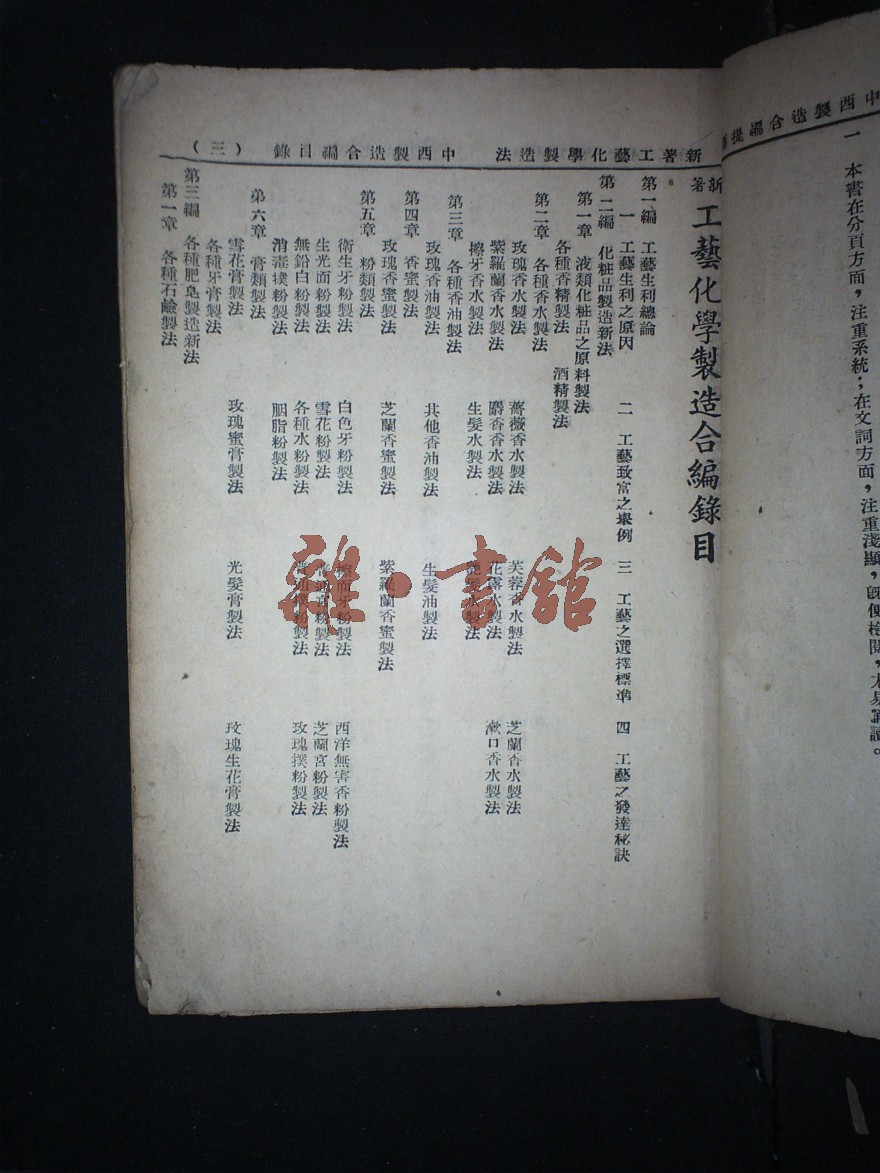 中西製造合編提
一 本書在分頁方面，注重系統；在文詞方面，注重淺顯，既便檢閱，尤易誦讀。
新著工藝化學製造法 中西製造合編目錄 （三）
新著 工藝化學製造合編錄目
第一編 工藝生利總論
一 工藝生利之原因 二 工藝致富之舉例 三 工藝之選擇標準 四 工藝之發達秘訣
第二編 化粧品製造新法
第一章 液類化粧品之原料製法
各種香精製法 酒精製法
第二章 各種香水製法
玫瑰香水製法 薔薇香水製法 芙蓉香水製法 芝蘭香水製法
紫羅蘭香水製法 麝香香水製法 花露水製法 漱口香水製法
擦牙香水製法 生髮水製法 髮水製法
第三章 各種香油製法
玫瑰香油製法 其他香油製法 生髮油製法
第四章 香蜜製法
玫瑰香蜜製法 芝蘭香蜜製法 紫羅蘭香蜜製法
第五章 粉類製法
衛生牙粉製法 白色牙粉製法 擦面牙粉製法 西洋無害香粉製法
生光面粉製法 雪花粉製法 普通宮粉製法 芝蘭宮粉製法
無鉛白粉製法 各種水粉製法 普通撲粉製法 玫瑰撲粉製法
消毒撲粉製法 胭脂粉製法
第六章 膏類製法
雪花膏製法 玫瑰蜜膏製法 光髮膏製法 玫瑰生花膏製法
各種牙膏製法
第三編 各種肥皂製造新法
第一章 各種石鹼製法
雜·書館